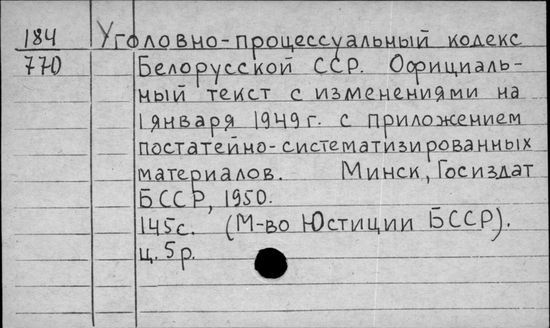 184 Уголовно-процессуальный кодекс
770 Белорусской ССР. Официаль-
ный текст с изменениями на
1 января 1949 г. с приложением
постатейно-систематизированных
материалов. Минск, Госиздат
БССР, 1950.
145с. (М-во Юстиции БССР).
ц. 5 р.